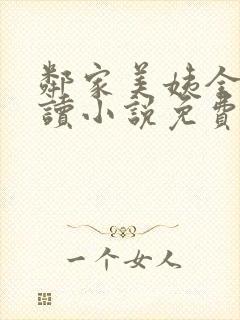 鄰家美姨全
讀小説免費
一个女人